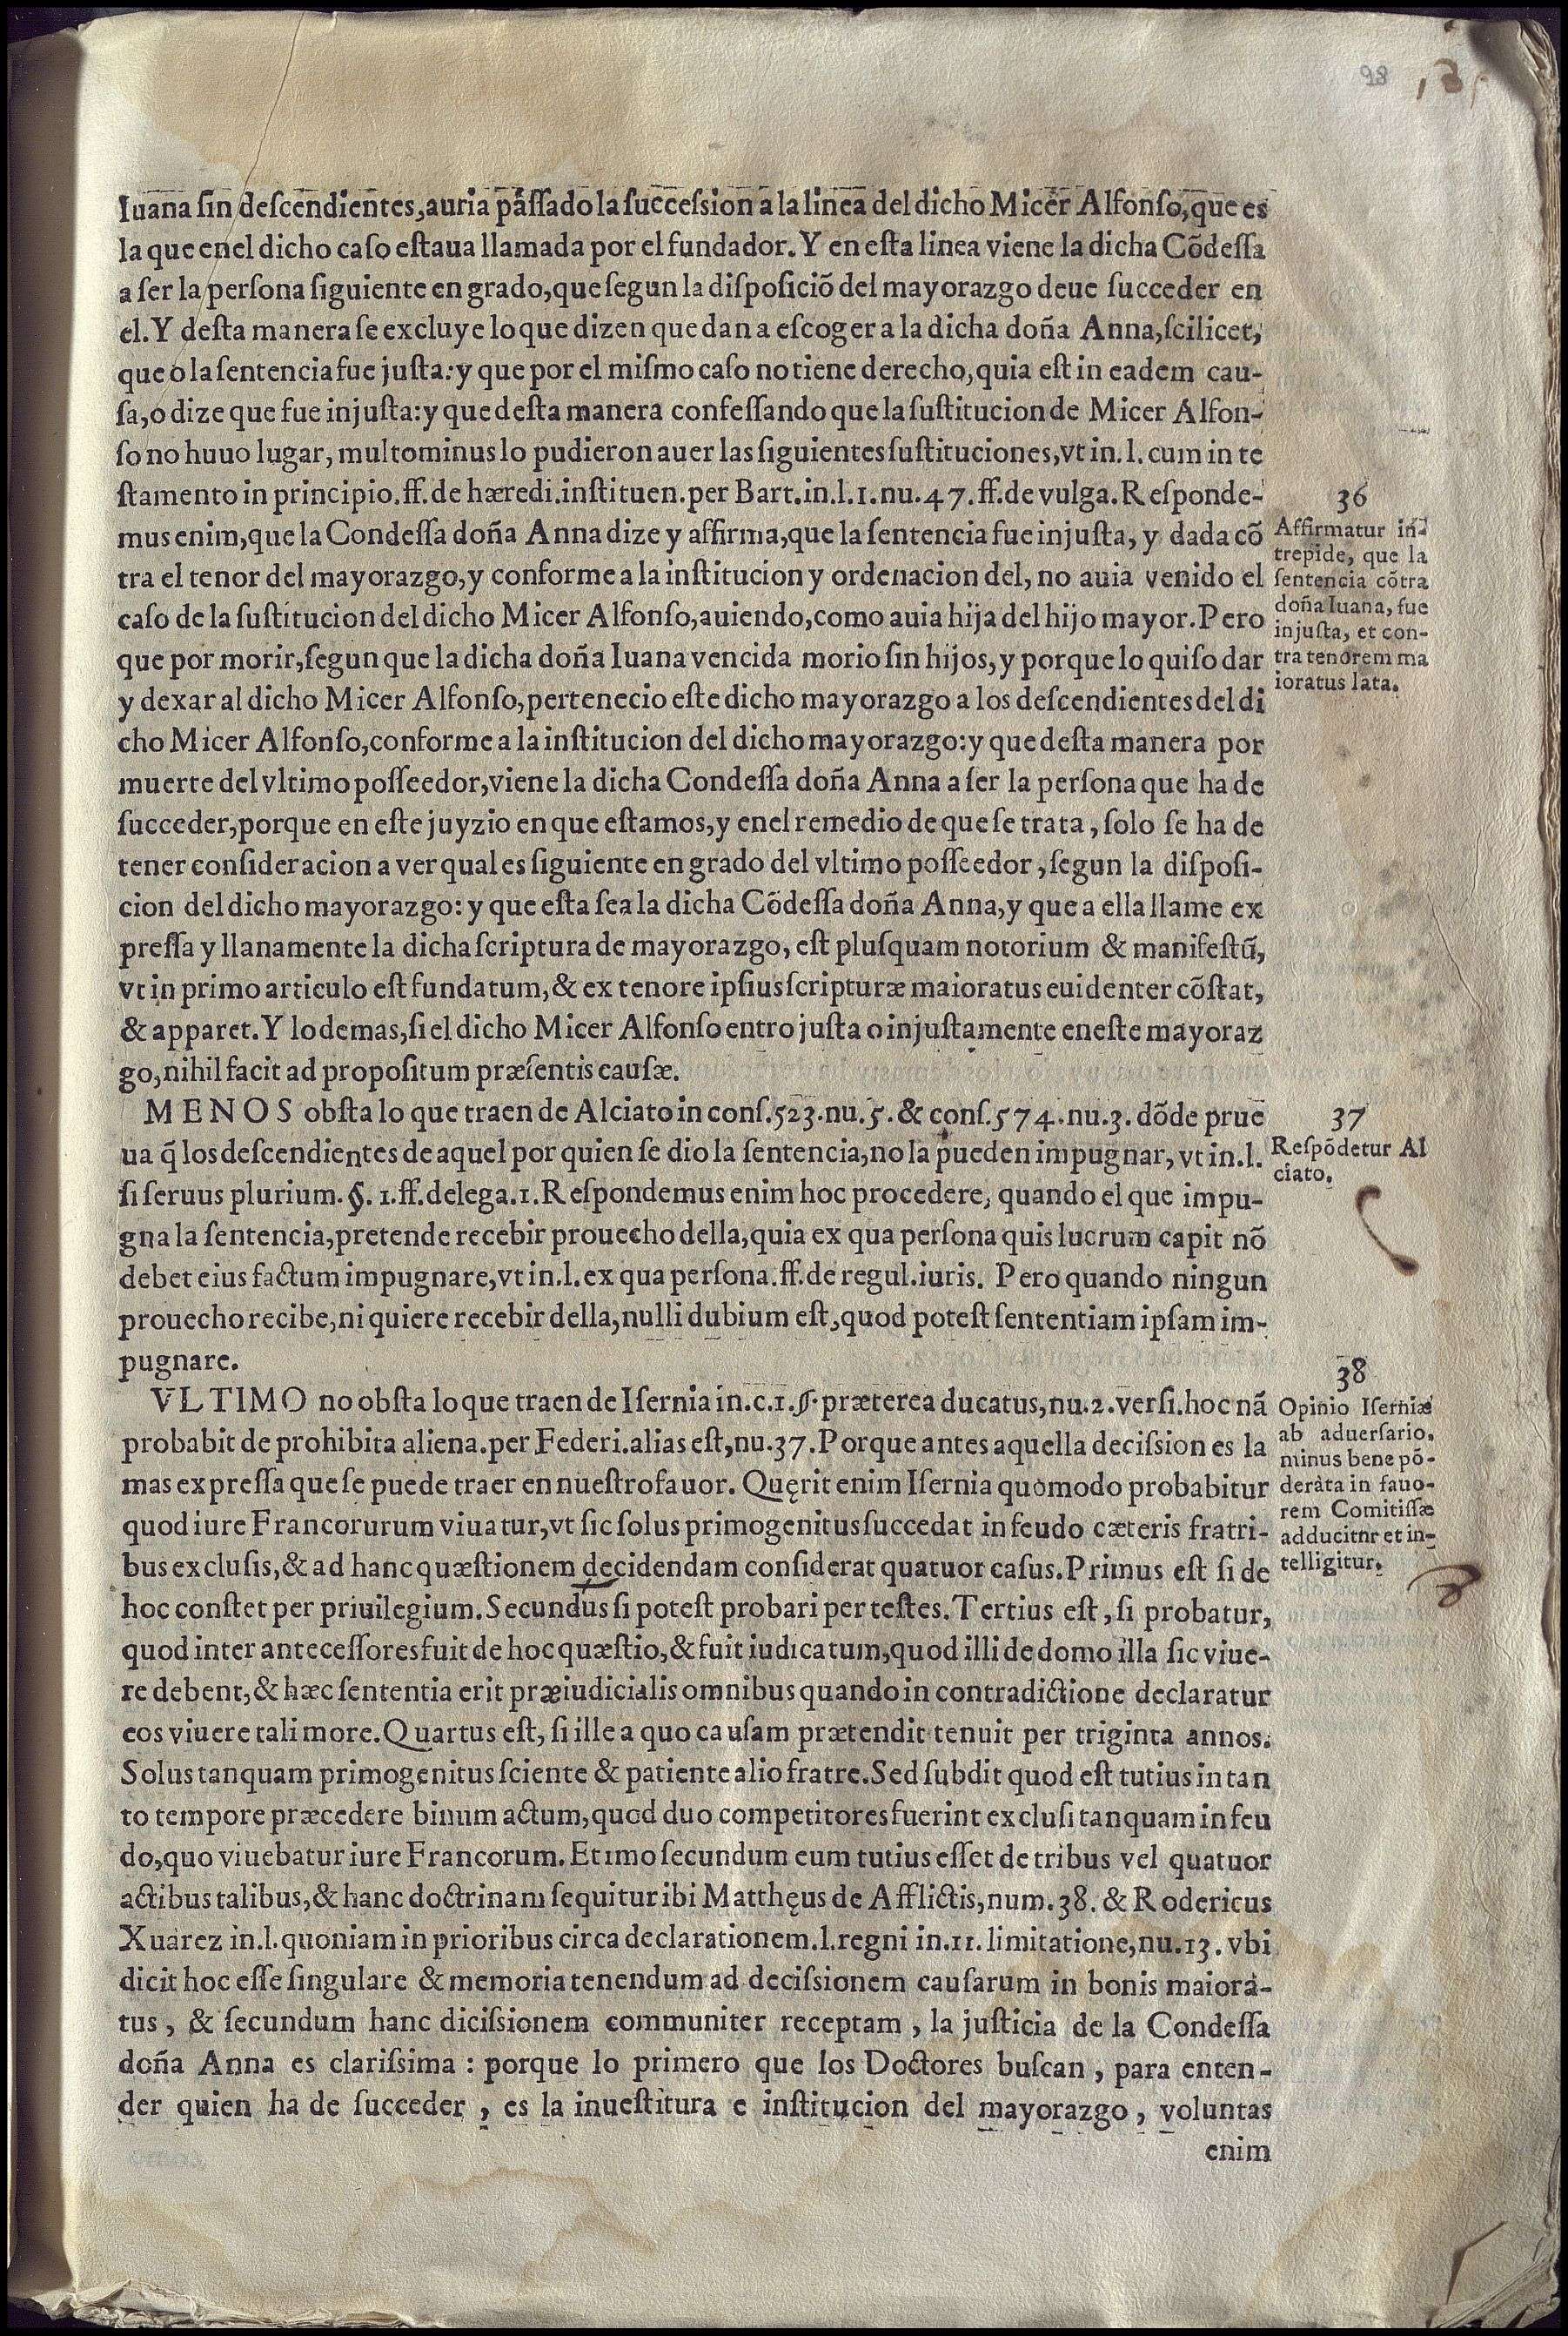 98
Iuana sin descendientes, auria passado la succession a la linea del dicho Micer Alfonso, que es
la que enel dicho caso estaua llamada por el fundador. Y en esta linea viene la dicha Cõdessa
a ser la persona siguiente en grado, que segun la disposiciõ del mayorazgo deue succeder en
el. Y desta manera se excluye lo que dizen que dan a escoger a la dicha doña Anna, scilicet,
que o la sentencia fue justa: y que por el mismo caso no tiene derecho, quia est in eadem cau-
sa, o dize que fue injusta: y que desta manera confessando que la sustitucion de Micer Alfon-
so no huuo lugar, multominus lo pudieron auer las siguientes sustituciones, vt in. l. cum in te
stamento in principio. ff. de hæredi. instituen. per Bart. in. l. 1. nu. 47. ff. de vulga. Responde-
mus enim, que la Condessa doña Anna dize y affirma, que la sentencia fue injusta, y dada cõ
tra el tenor del mayorazgo, y conforme a la institucion y ordenacion del, no auia venido el
caso de la sustitucion del dicho Micer Alfonso, auiendo, como auia hija del hijo mayor. Pero
que por morir, segun que la dicha doña Iuana vencida morio sin hijos, y porque lo quiso dar
y dexar al dicho Micer Alfonso, pertenecio este dicho mayorazgo a los descendientes del di
cho Micer Alfonso, conforme a la institucion del dicho mayorazgo: y que desta manera por
muerte del vltimo posseedor, viene la dicha Condessa doña Anna a ser la persona que ha de
succeder, porque en este juyzio en que estamos, y enel remedio de que se trata, solo se ha de
tener consideracion a ver qual es siguiente en grado del vltimo posseedor, segun la disposi-
cion del dicho mayorazgo: y que esta sea la dicha Cõdessa doña Anna, y que a ella llame ex
pressa y llanamente la dicha scriptura de mayorazgo, est plusquam notorium & manifestũ,
vt in primo articulo est fundatum, & ex tenore ipsius scripturæ maioratus euidenter cõstat,
& apparet. Y lo demas, si el dicho Micer Alfonso entro justa o injustamente eneste mayoraz
go, nihil facit ad propositum præsentis causæ.
36
Affirmatur in-
trepide, que la
sentencia cõtra
doña Iuana, fue
injusta, et con-
tra tenorem ma
ioratus lata.
MENOS obsta lo que traen de Alciato in cons. 523. nu. 5. & cons. 574. nu. 3. dõde prue
ua q̃ los descendientes de aquel por quien se dio la sentencia, no la pueden impugnar, vt in. l.
si seruus plurium. §. 1. ff. de lega. 1. Respondemus enim hoc procedere, quando el que impu-
gna la sentencia, pretende recebir prouecho della, quia ex qua persona quis lucrum capit nõ
debet eius factum impugnare, vt in. l. ex qua persona. ff. de regul. iuris. Pero quando ningun
prouecho recibe, ni quiere recebir della, nulli dubium est, quod potest sententiam ipsam im-
pugnare.
37
Respõdetur Al
ciato.
VLTIMO no obsta lo que traen de Isernia in. c. 1. §. præterea ducatus, nu. 2. versi. hoc nã
probabit de prohibita aliena. per Federi. alias est, nu. 37. Porque antes aquella decission es la
mas expressa que se puede traer en nuestro fauor. Quęrit enim Isernia quomodo probabitur
quod iure Francorurum viuatur, vt sic solus primogenitus succedat in feudo cæteris fratri-
bus exclusis, & ad hanc quæstionem decidendam considerat quatuor casus. Primus est si de
hoc constet per priuilegium. Secundus si potest probari per testes. Tertius est, si probatur,
quod inter antecessores fuit de hoc quæstio, & fuit iudicatum, quod illi de domo illa sic viue-
re debent, & hæc sententia erit præiudicialis omnibus quando in contradictione declaratur
eos viuere tali more. Quartus est, si ille a quo causam prætendit tenuit per triginta annos.
Solus tanquam primogenitus sciente & patiente alio fratre. Sed subdit quod est tutius in tan
to tempore præcedere binum actum, quod duo competitores fuerint exclusi tanquam in feu
do, quo viuebatur iure Francorum. Et imo secundum eum tutius esset de tribus vel quatuor
actibus talibus, & hanc doctrinam sequitur ibi Matthęus de Afflictis, num. 38. & Rodericus
Xuarez in. l. quoniam in prioribus circa declarationem. l. regni in. 11. limitatione, nu. 13. vbi
dicit hoc esse singulare & memoria tenendum ad decissionem causarum in bonis maiora-
tus, & secundum hanc dicissionem communiter receptam, la justicia de la Condessa
doña Anna es clarissima: porque lo primero que los Doctores buscan, para enten-
der quien ha de succeder, es la inuestitura e institucion del mayorazgo, voluntas
enim
38
Opinio Iserniæ
ab aduersario,
minus bene põ-
derata in fauo-
rem Comitissæ
adducitnr et in-
telligitur.